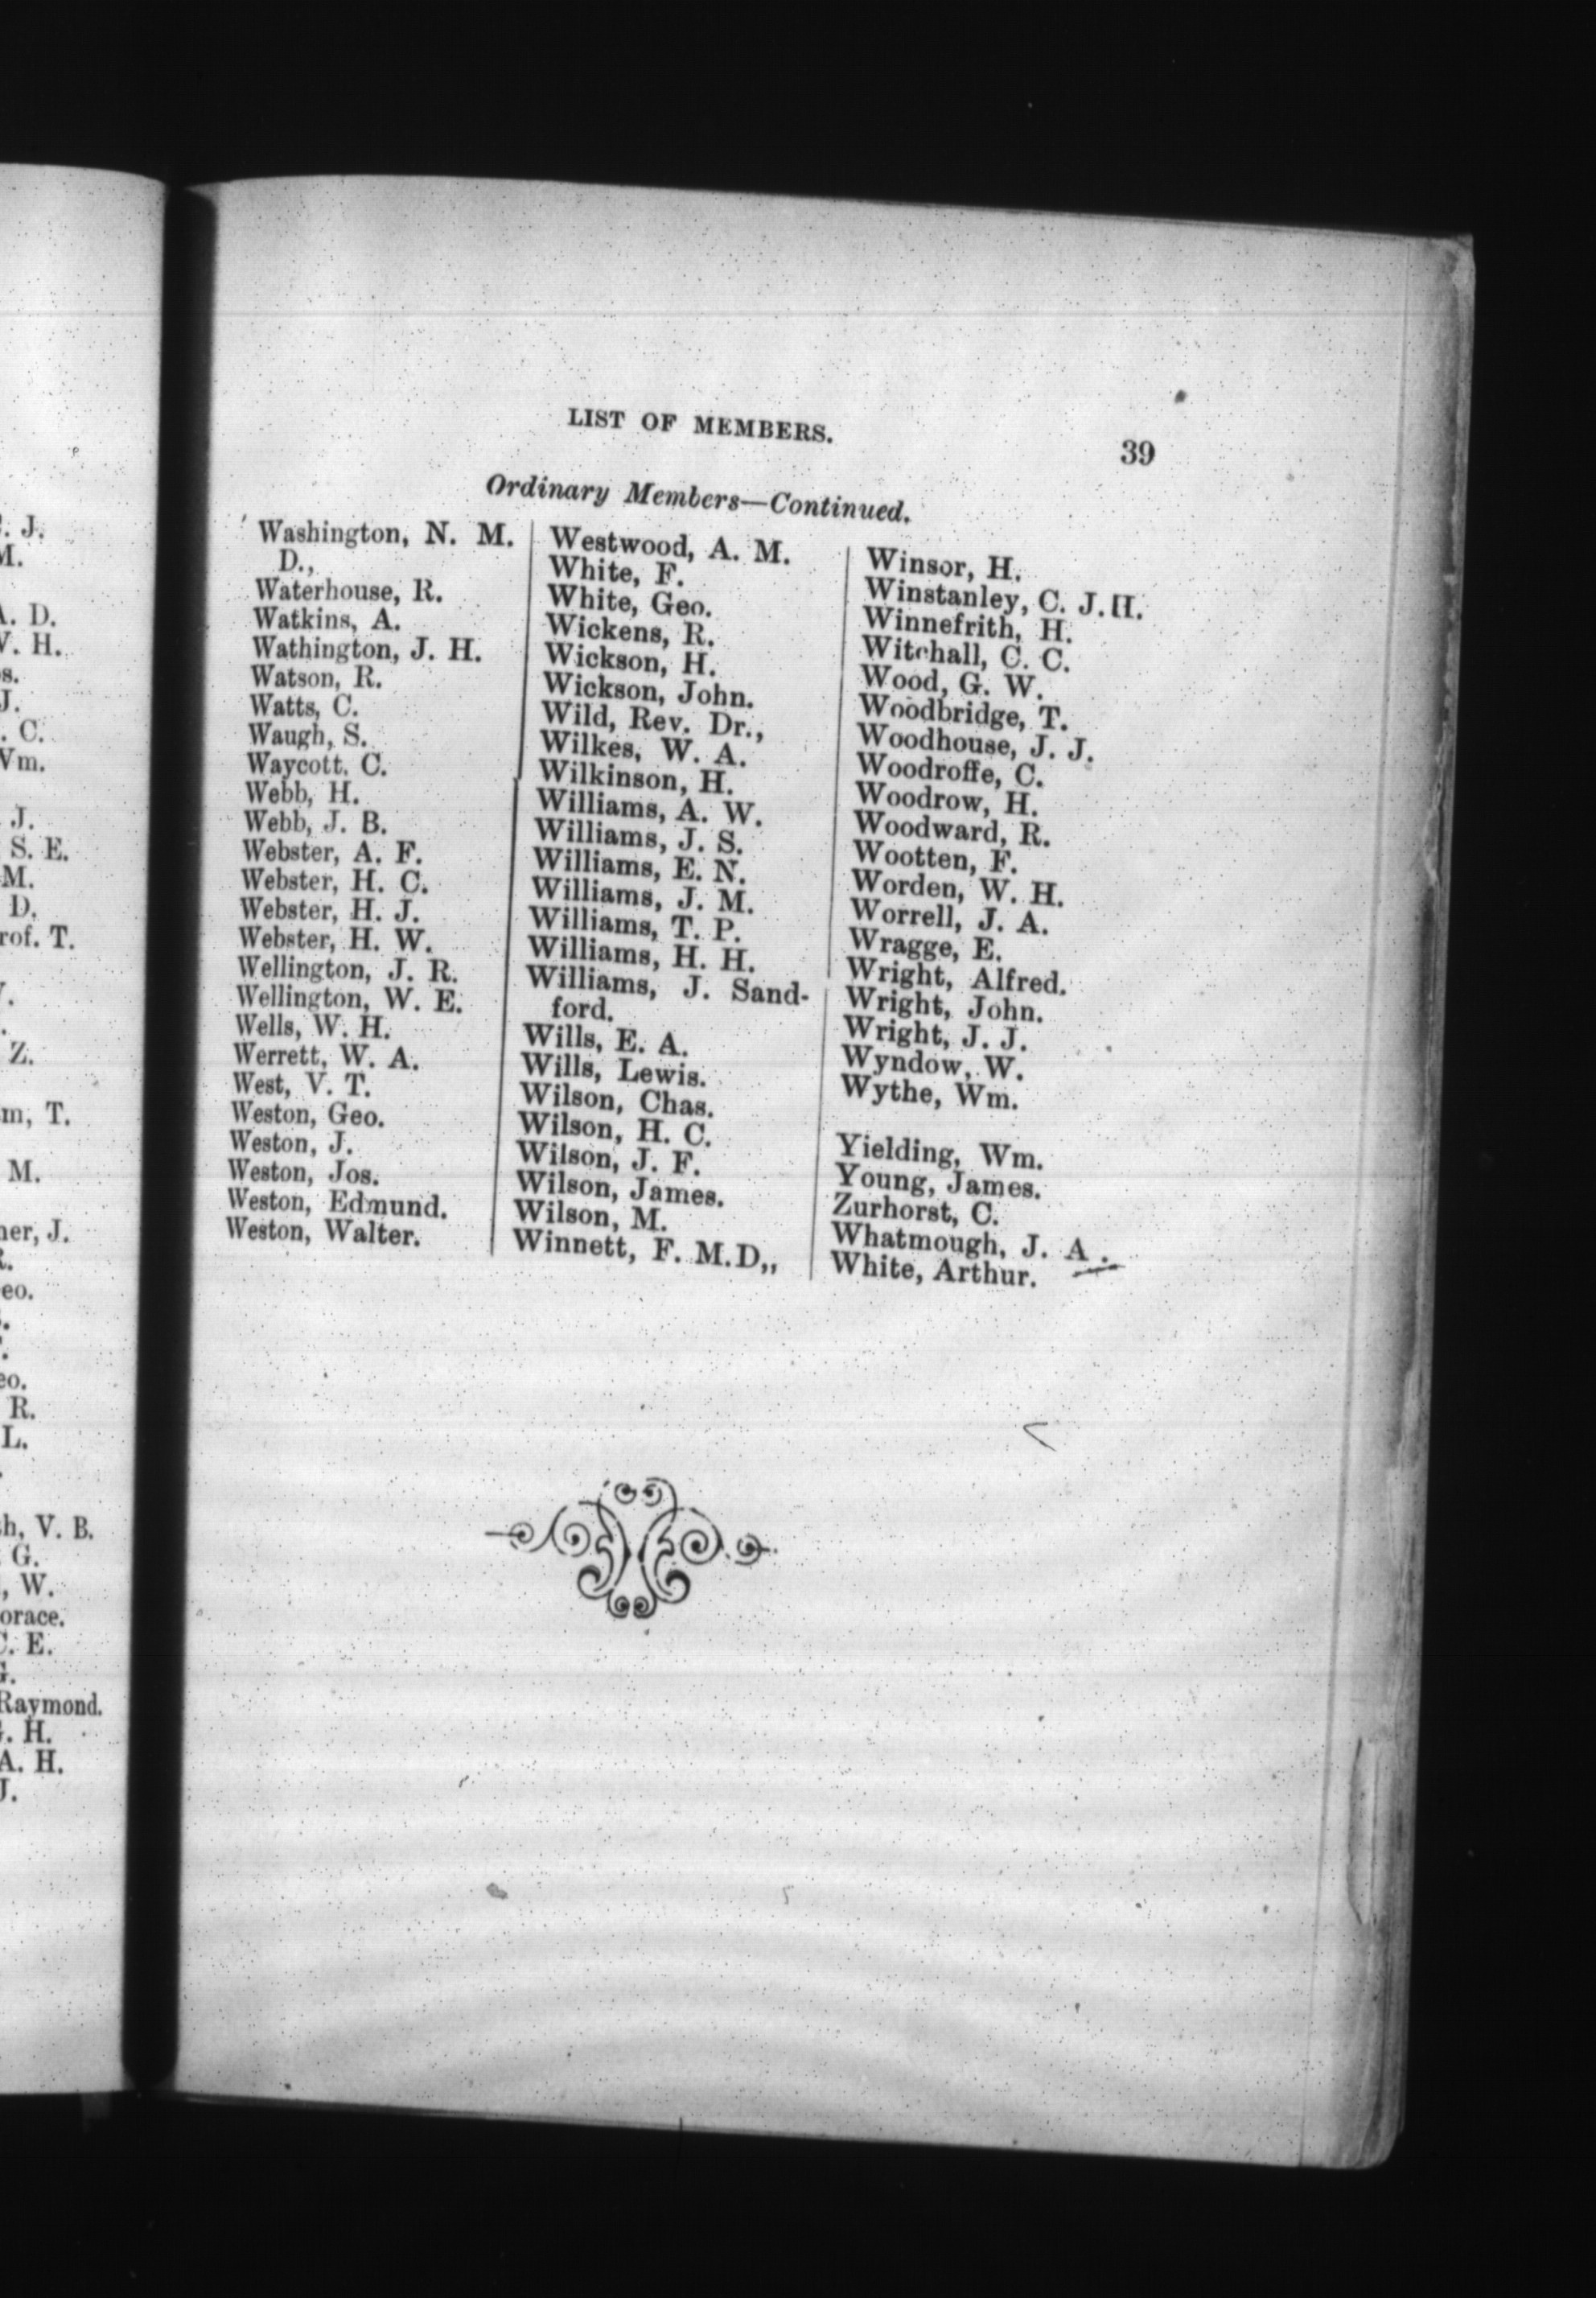 LIST OF MEMBERS.
39
Ordinary Members—Continued.
Washington, N. M.
D.,
Waterhouse, R.
Watkins, A.
Wathington, J. H.
Watson, R.
Watts, C.
Waugh, S.
Waycott, C.
Webb, H.
Webb, J. B.
Webster, A. F.
Webster, H. C.
Webster, H. J.
Webster, H. W.
Wellington, J. R.
Wellington, W. E.
Wells, W. H.
Werrett, W. A.
West, V. T.
Weston, Geo.
Weston, J.
Weston, Jos.
Weston, Edmund.
Weston, Walter.
Westwood, A. M.
White, F.
White, Geo.
Wickens, R.
Wickson, H.
Wickson, John.
Wild, Rev. Dr.,
Wilkes, W. A.
Wilkinson, H.
Williams, A. W.
Williams, J. S.
Williams, E. N.
Williams, J. M.
Williams, T. P.
Williams, H. H.
Williams, J. Sand-
ford.
Wills, E. A.
Wills, Lewis.
Wilson, Chas.
Wilson, H. C.
Wilson, J. F.
Wilson, James.
Wilson, M.
Winnett, F. M.D,,
Winsor, H.
Winstanley, C. J. H.
Winnefrith, H.
Witchall, C. C.
Wood, G. W.
Woodbridge, T.
Woodhouse, J. J.
Woodroffe, C.
Woodrow, H.
Woodward, R.
Wootten, F.
Worden, W. H.
Worrell, J. A.
Wragge, E.
Wright, Alfred.
Wright, John.
Wright, J. J.
Wyndow, W.
Wythe, Wm.
Yielding, Wm.
Young, James.
Zurhorst, C.
Whatmough, J. A.
White, Arthur.